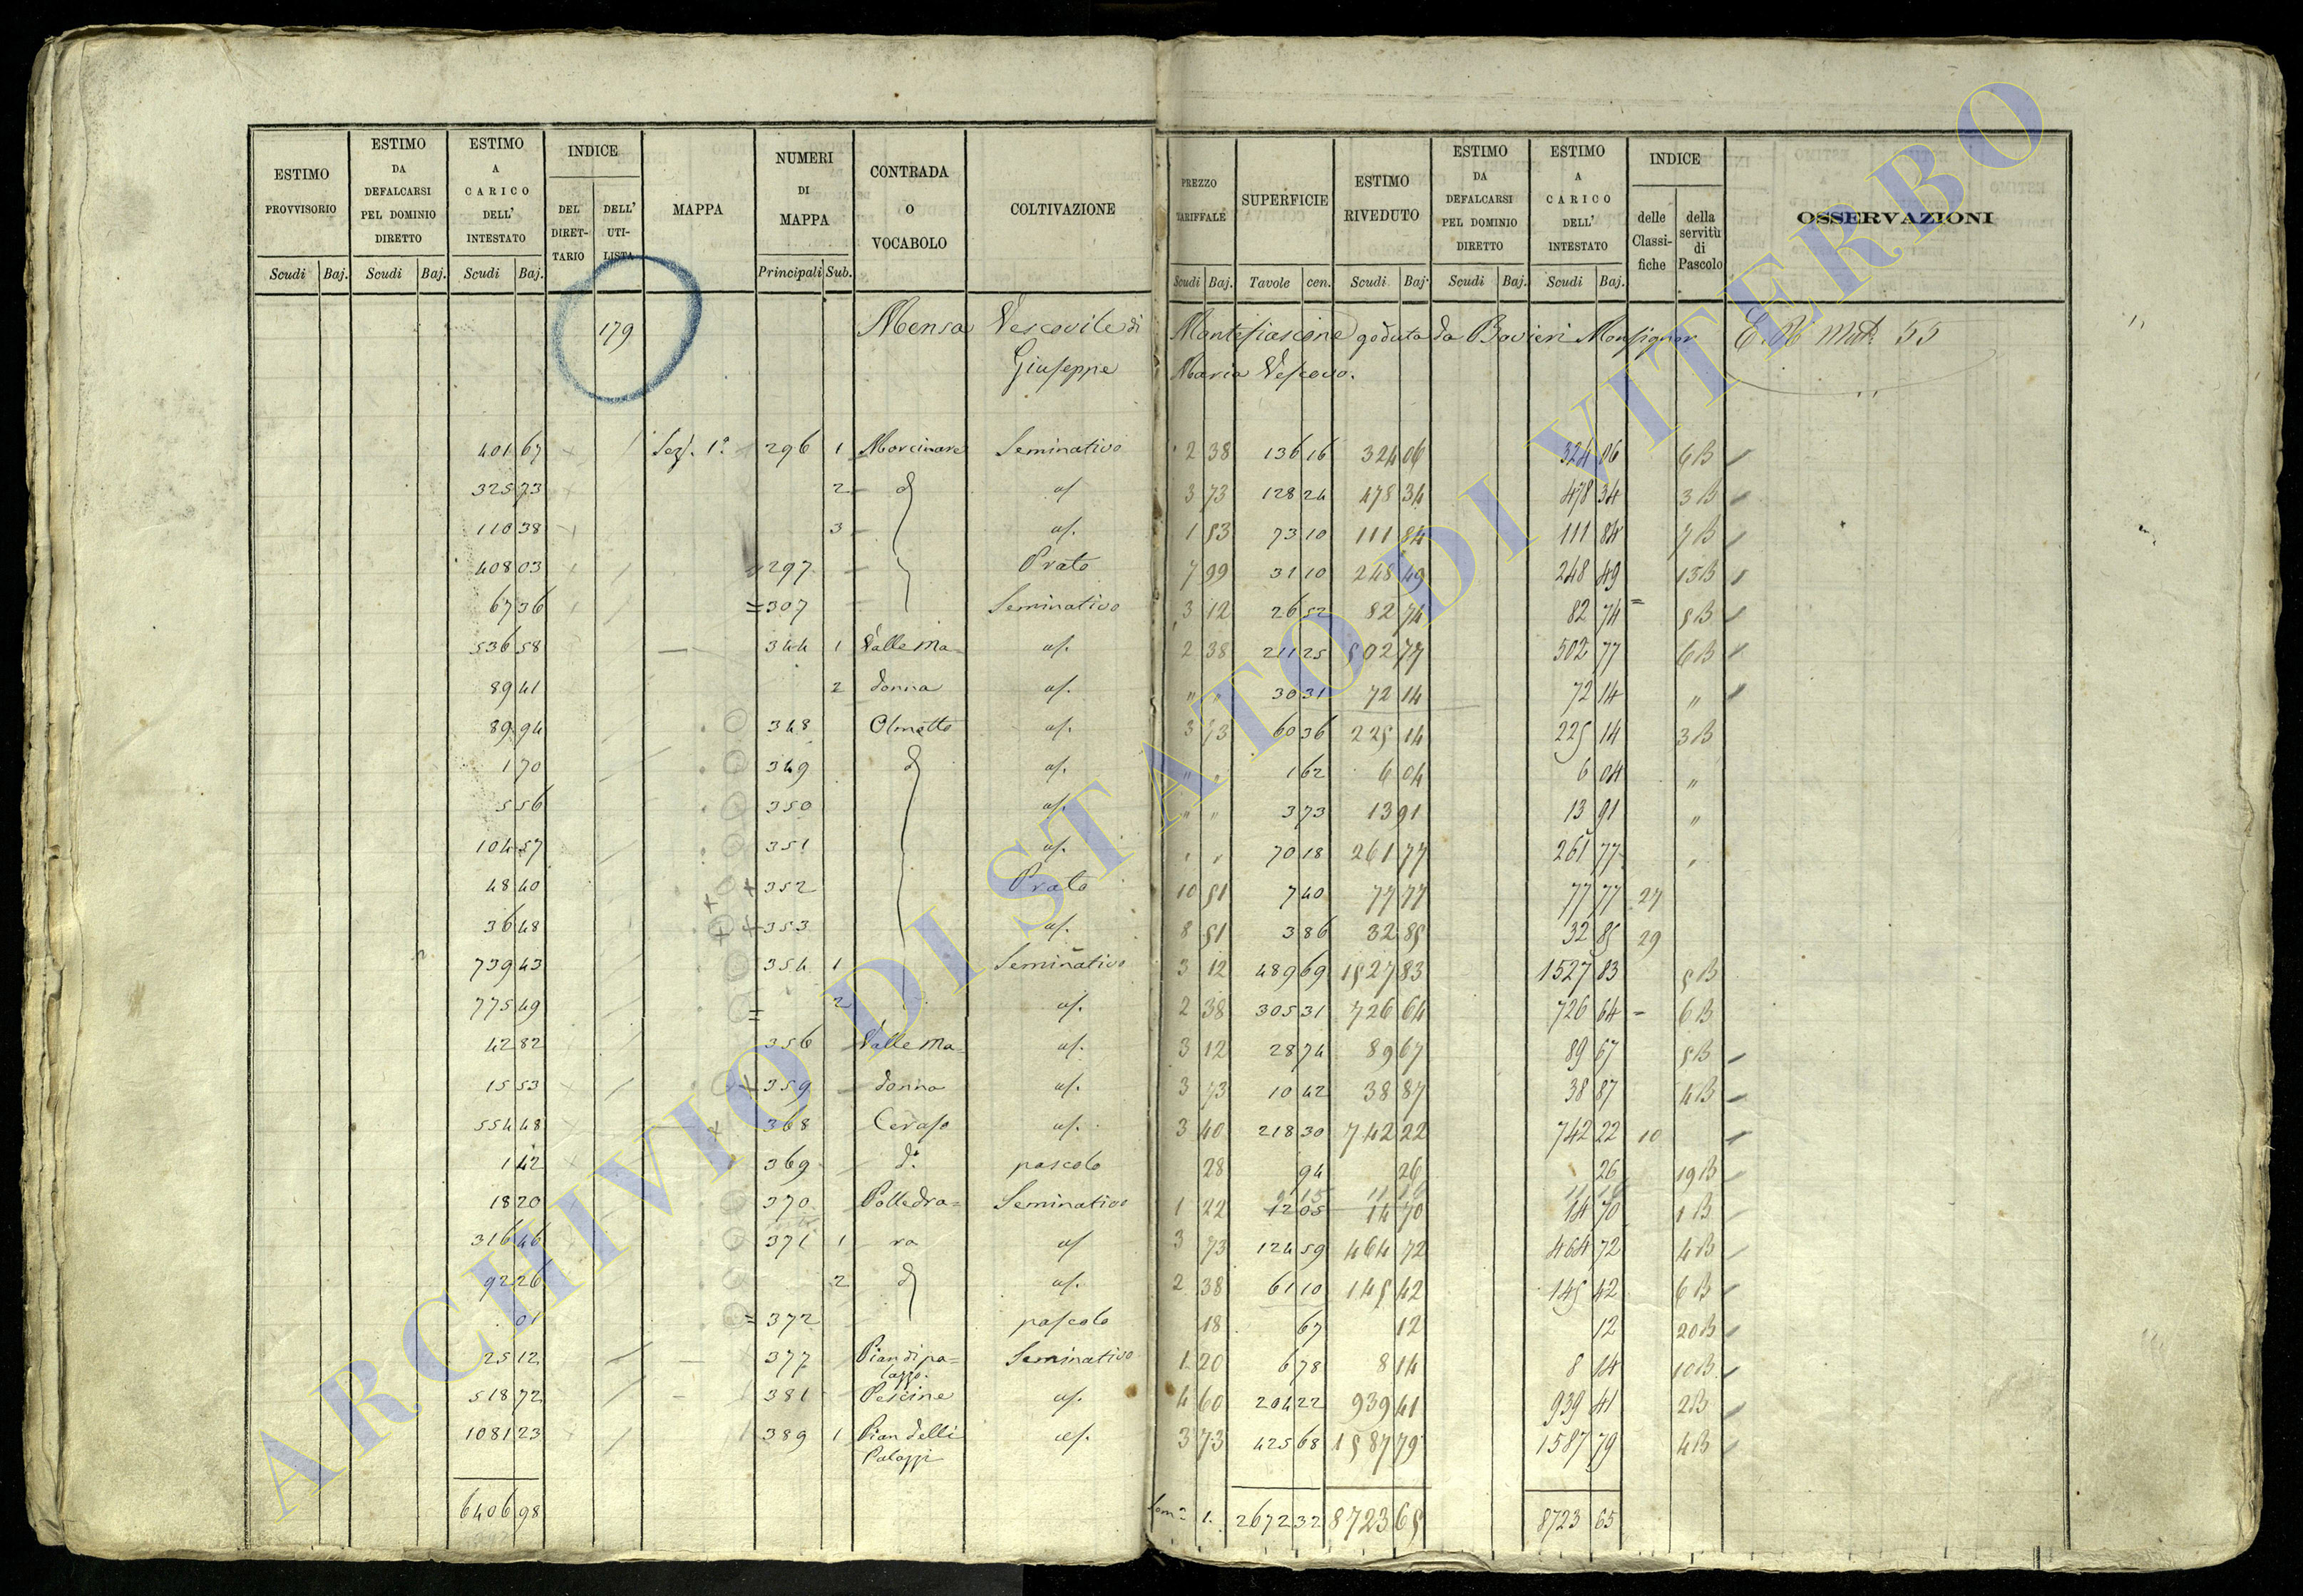 ESTIMO PROVVISORIO | ESTIMO DA DEFALCARSI PEL DOMINIO DIRETTO | ESTIMO A CARICO DELL' INTESTATO | INDICE DEL DIRETTARIO | DELL' UTILISTA | MAPPA | NUMERI DI MAPPA | CONTRADA O VOCABOLO | COLTIVAZIONE | PREZZO TARIFFALE | SUPERFICIE | ESTIMO RIVEDUTO | ESTIMO DA DEFALCARSI PEL DOMINIO DIRETTO | ESTIMO A CARICO DELL' INTESTATO | INDICE delle Classifiche | della servitù di Pascolo | OSSERVAZIONI
Scudi Baj. | Scudi Baj. | Scudi Baj. | Principali Sub. | Scudi Baj. | Tavole cen. | Scudi Baj | Scudi Baj. | Scudi Baj.
179 Mensa Vescovile di Montefiascone goduta da Bovieri Monsignor
Giuseppe Maria Vescovo.
401 67 Sez. 1ª 296 1 Morcinare Seminativo 2 38 136 16 324 06 324 06 6B
325 73 2 d us. 3 73 128 24 478 34 478 34 3B
110 38 3 us. 1 53 73 10 111 84 111 84 7B
408 03 297 Prato 7 99 31 10 248 49 248 49 13B
67 36 =307 Seminativo 3 12 26 52 82 74 82 74 5B
536 58 344 1 Valle Ma= us. 2 38 211 25 502 77 502 77 6B
89 41 2 donna us. " " 30 31 72 14 72 14 "
89 94 348 Olmetto us. 3 73 60 36 225 14 225 14 3B
1 70 349 d us. " " 1 62 6 04 6 04 "
5 56 350 us. " " 3 73 13 91 13 91 "
104 57 351 us. " " 70 18 261 77 261 77 "
48 40 352 Prato 10 51 7 40 77 77 77 77 27
36 48 353 us. 8 51 3 86 32 85 32 85 29
739 43 354 1 Seminativo 3 12 489 69 1527 83 1527 83 5B
775 49 = 2 us. 2 38 305 31 726 64 726 64 6B
42 82 356 Valle Ma= us. 3 12 28 74 89 67 89 67 5B
15 53 359 donna us. 3 73 10 42 38 87 38 87 4B
554 48 368 Ceraso us. 3 40 218 30 742 22 742 22 10
1 42 369 d.º pascolo 28 94 26 26 19B
18 20 370 Polledra= Seminativo 1 22 12 05 14 70 14 70 1B
316 46 371 1 ra us 3 73 124 59 464 72 464 72 4B
92 26 2 d us. 2 38 61 10 145 42 145 42 6B
01 =372 pascolo 18 67 12 12 20B
25 12 377 Pian di pa= Seminativo 1 20 6 78 8 14 8 14 10B
lazzo.
518 72 381 Pescine us. 4 60 204 22 939 41 939 41 2B
1081 23 389 1 Pian delli us. 3 73 425 68 1587 79 1587 79 4B
Palazzi
6406 98 1. 2672 32 8723 65 8723 65
ARCHIVIO DI STATO DI VITERBO